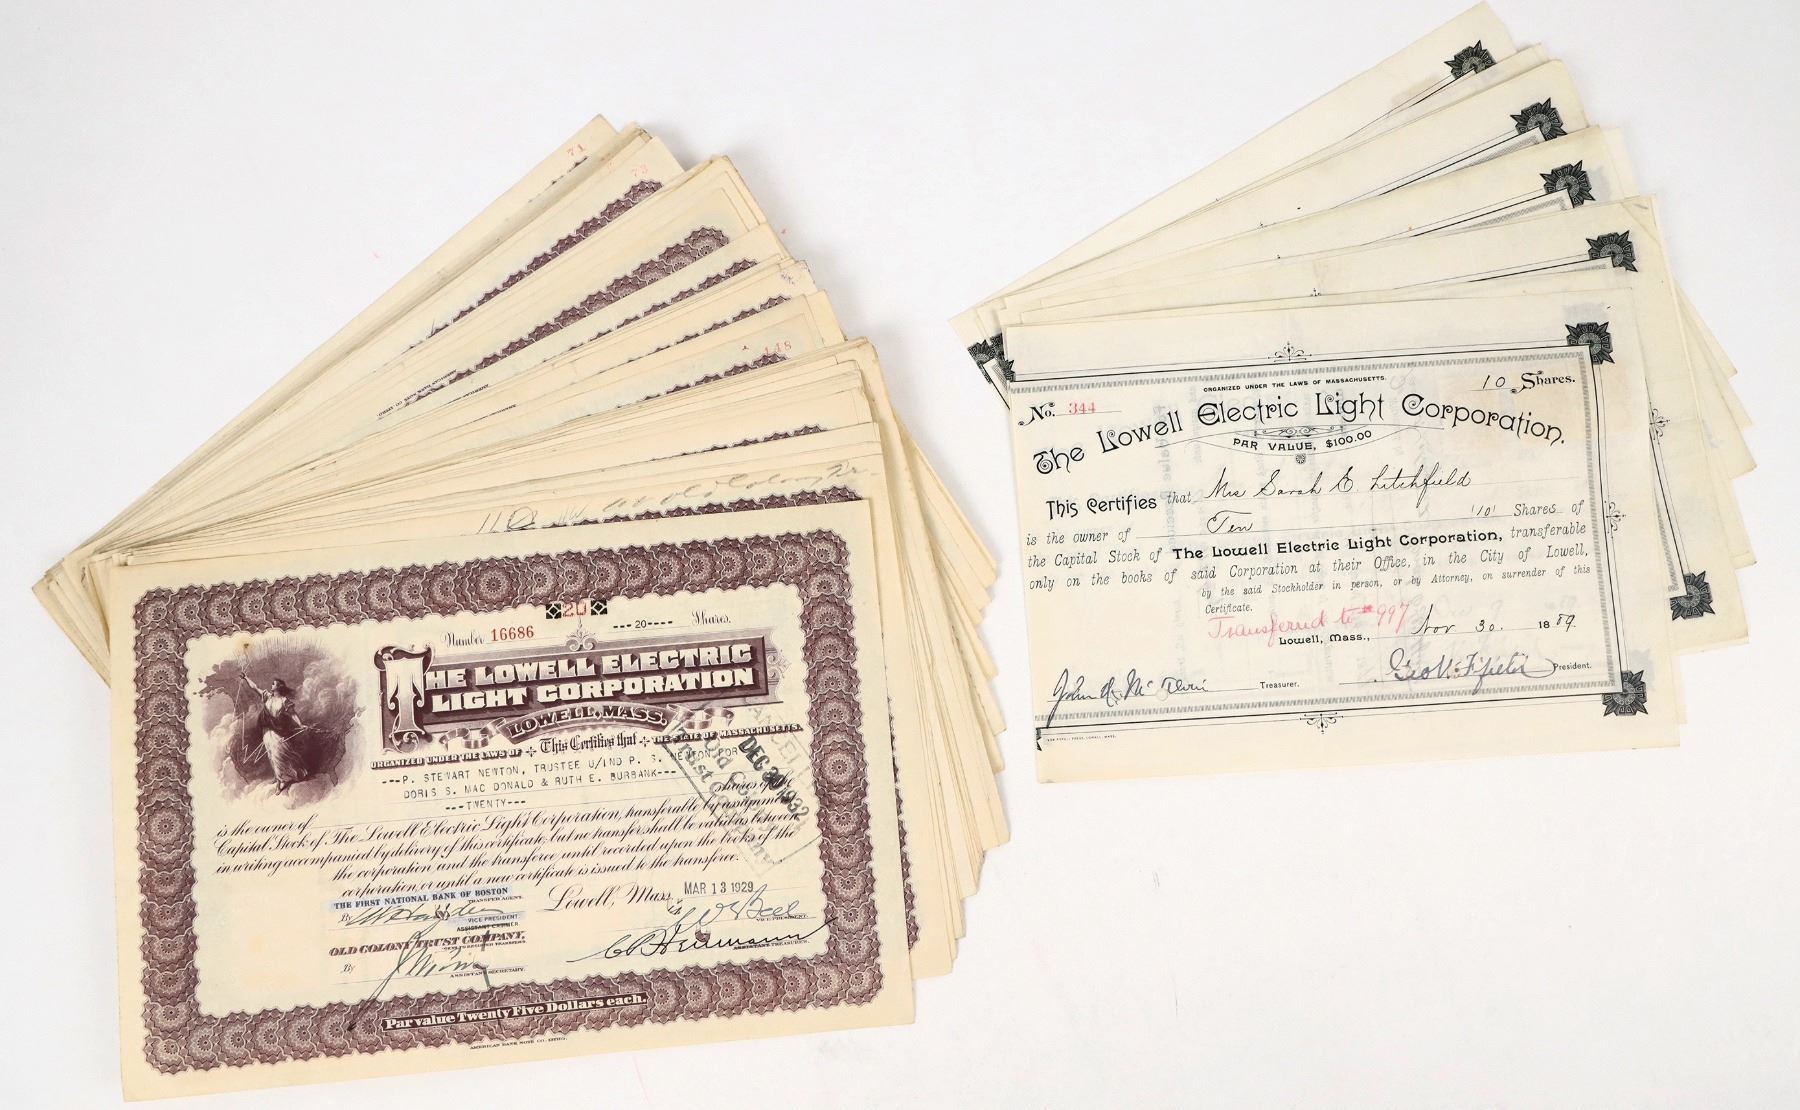 71
73
148
Number 16686
20
---20---- Shares.
THE LOWELL ELECTRIC
LIGHT CORPORATION
LOWELL, MASS.
ORGANIZED UNDER THE LAWS OF This Certifies that THE STATE OF MASSACHUSETTS.
---P. STEWART NEWTON, TRUSTEE U/IND P. S. NEWTON FOR
DORIS S. MAC DONALD & RUTH E. BURBANK---
---TWENTY--- shares of the
is the owner of
Capital Stock of The Lowell Electric Light Corporation, transferable by assignment
in writing accompanied by delivery of this certificate, but no transfer shall be valid as between
the corporation and the transferee until recorded upon the books of the
corporation, or until a new certificate is issued to the transferee.
THE FIRST NATIONAL BANK OF BOSTON
TRANSFER AGENT.
Lowell, Mass. MAR 13 1929
By
VICE PRESIDENT
VICE PRESIDENT
OLD COLONY TRUST COMPANY,
ASSISTANT TREASURER.
By
ASSISTANT SECRETARY.
CANCELLED
DEC 30 1932
Old Colony
Trust Company
Par value Twenty Five Dollars each.
AMERICAN BANK NOTE CO. LITHO.
ORGANIZED UNDER THE LAWS OF MASSACHUSETTS.
No. 344
10 Shares.
The Lowell Electric Light Corporation.
PAR VALUE, $100.00
This Certifies that Mrs Sarah E Litchfield
is the owner of Ten "10" Shares of
the Capital Stock of The Lowell Electric Light Corporation, transferable
only on the books of said Corporation at their Office, in the City of Lowell,
by the said Stockholder in person, or by Attorney, on surrender of this
Certificate.
Transferred to #997
Lowell, Mass., Nov 30. 1889.
John A McAlvin Treasurer.
Geo W. Fifield President.